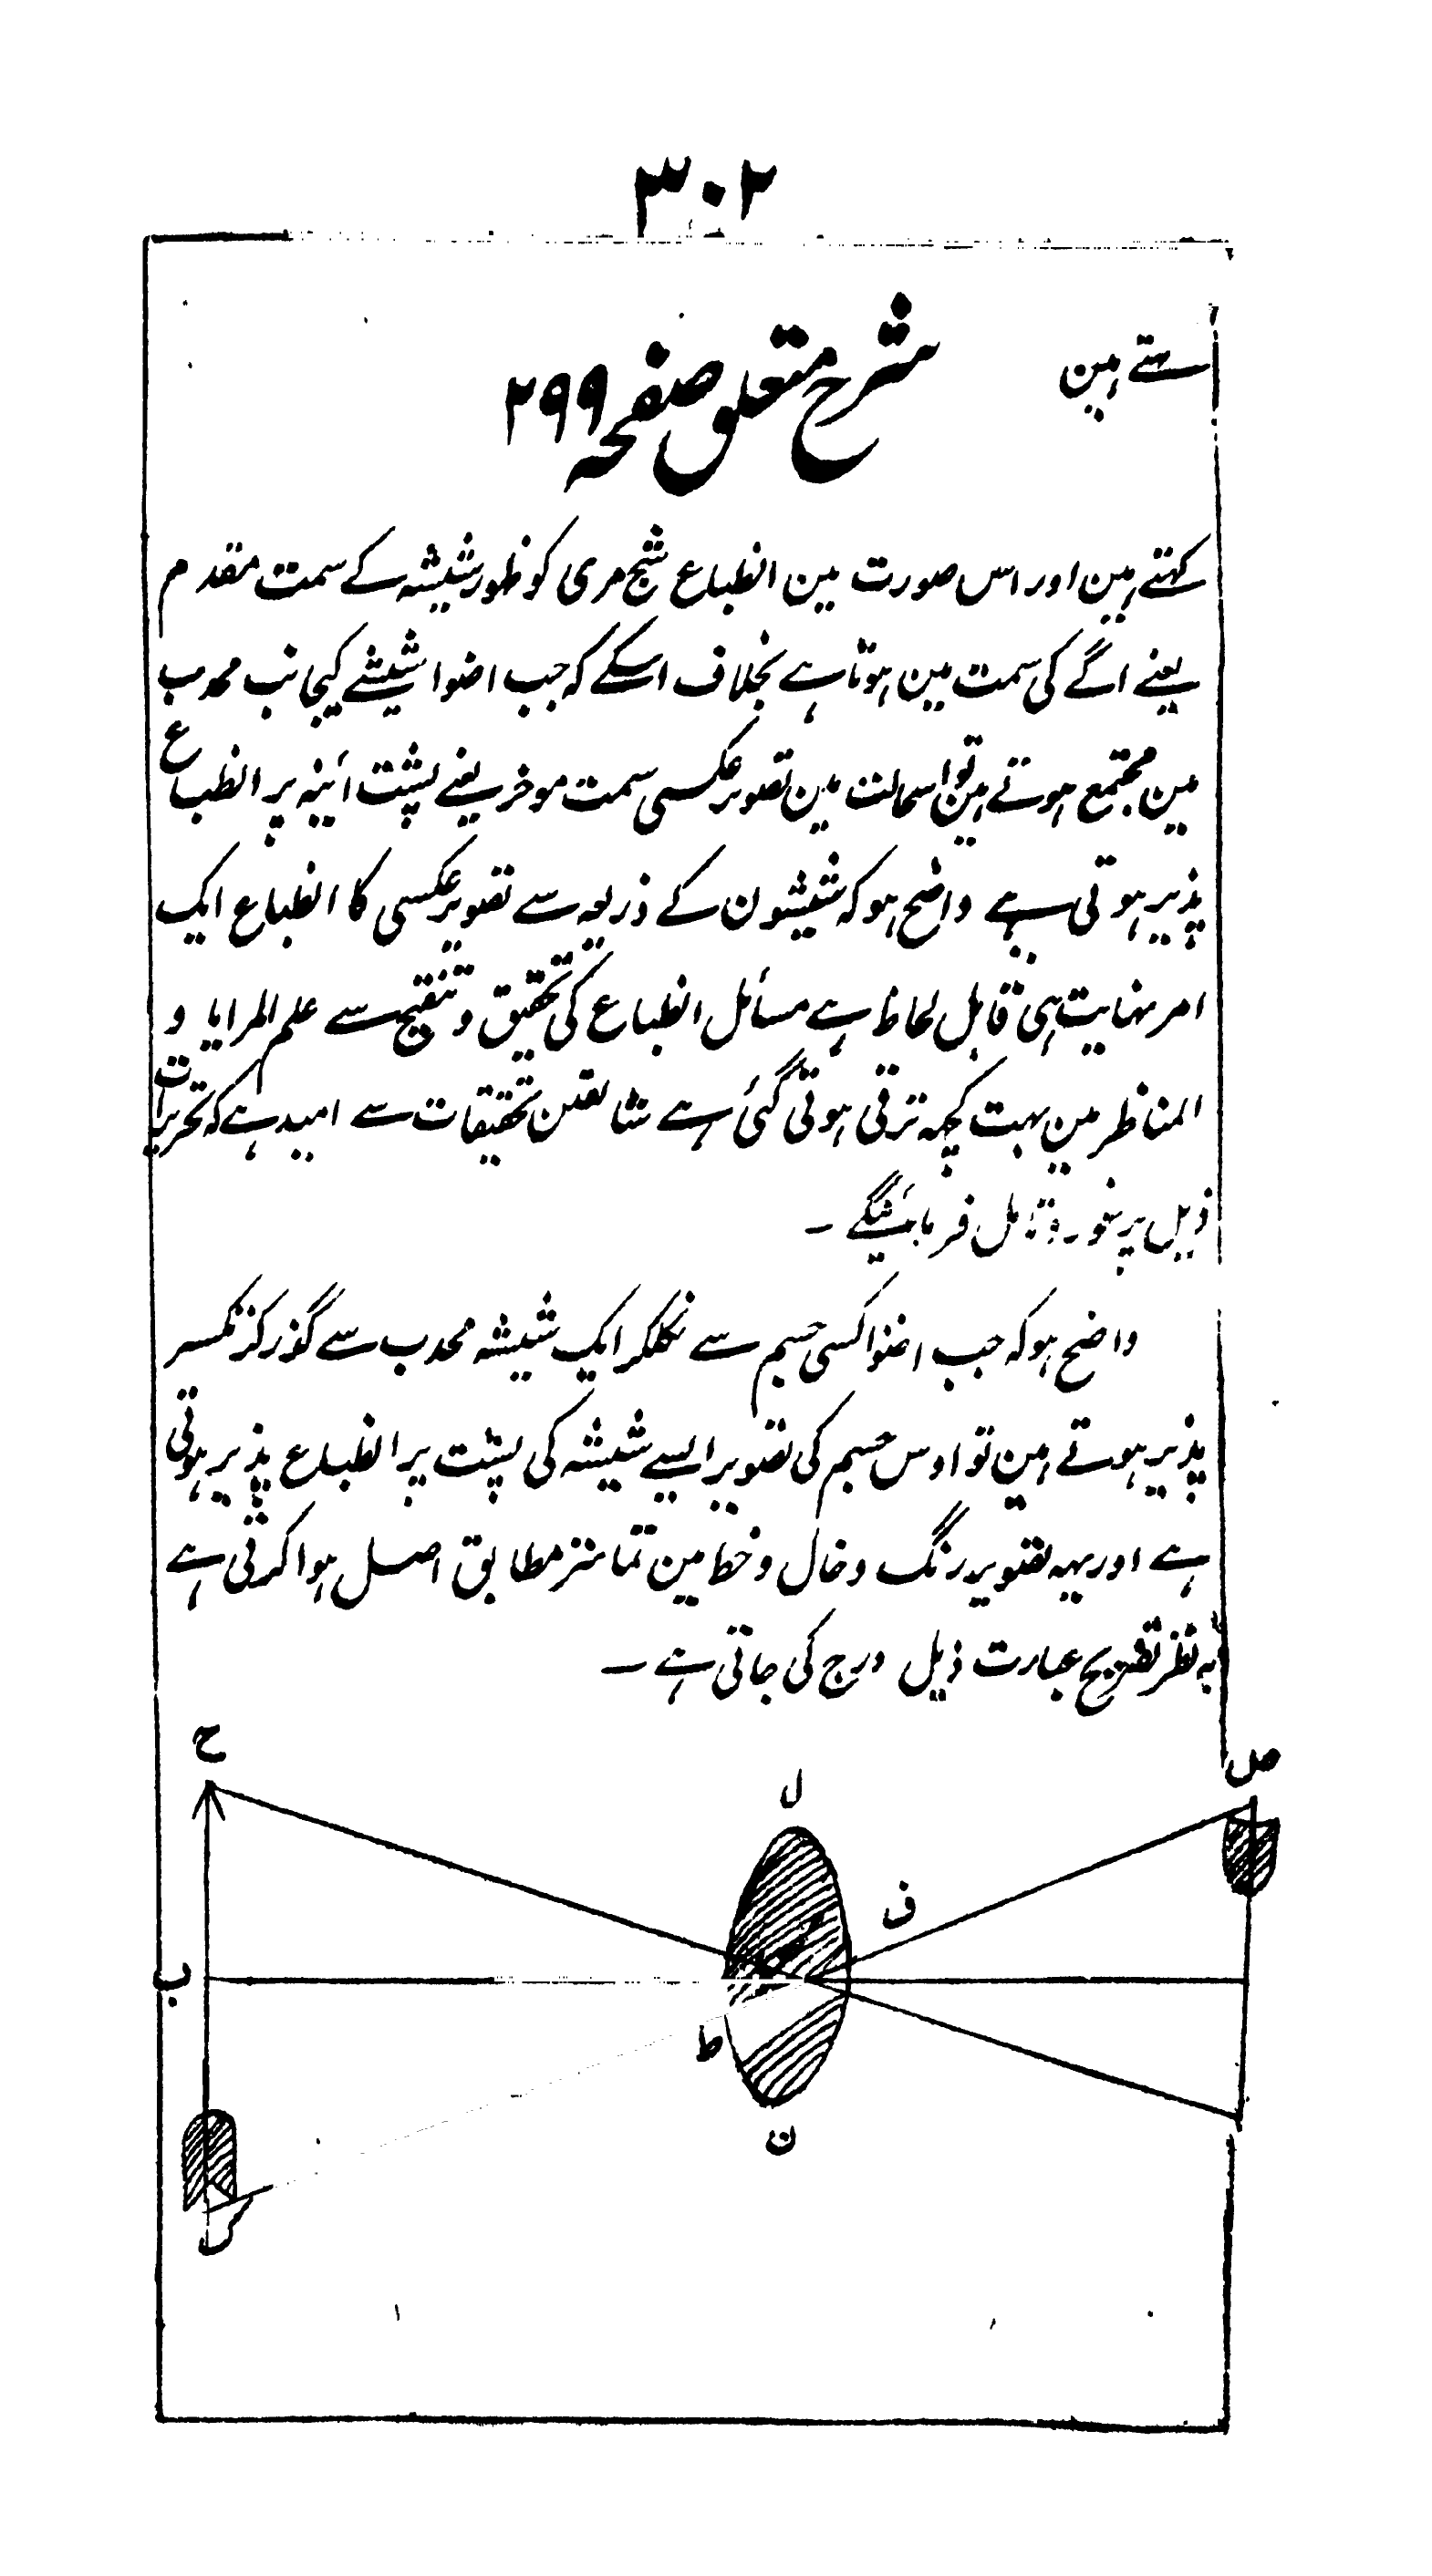 ۳۰۲
ستے ہین
شرح متعلق صفحہ ۲۹۹
کہتے ہین اور اس صورت مین انطباع شبح مری کو ظہور شیشہ کے سمت مقدم
یعنے اگے کی سمت مین ہوتا ہے بخلاف اسکے کہ جب اضوا شیشے کیجانب محدب
مین مجتمع ہوتے ہین تو اسحالت مین تصویر عکسی سمت موخر یعنے پشت ائینہ پر انطباع
پذیر ہوتی ہے واضح ہو کہ شیشون کے ذریعہ سے تصویر عکسی کا انطباع ایک
امر نہایت ہی قابل لحاظ ہے مسائل انطباع کی تحقیق و تنقیح سے علم المرایا و
المناظر مین بہت کچہہ ترقی ہوتی گئی ہے شائقین تحقیقات سے امید ہے کہ تحریرات
ذیل پر غور و تامل فرمائینگے ۔
واضح ہو کہ جب اضوا کسی جسم سے نکلکر ایک شیشہ محدب سے گذر کر منکسر
پذیر ہوتے ہین تو اوس جسم کی تصویر ایسے شیشہ کی پشت پر انطباع پذیر ہوتی
ہے اور یہہ تصویر رنگ و خال و خط مین تمامتر مطابق اصل ہوا کرتی ہے
بہ نظر تصریح عبارت ذیل درج کی جاتی ہے ۔
ح
ل
ص
ف
ب
ط
ن
س